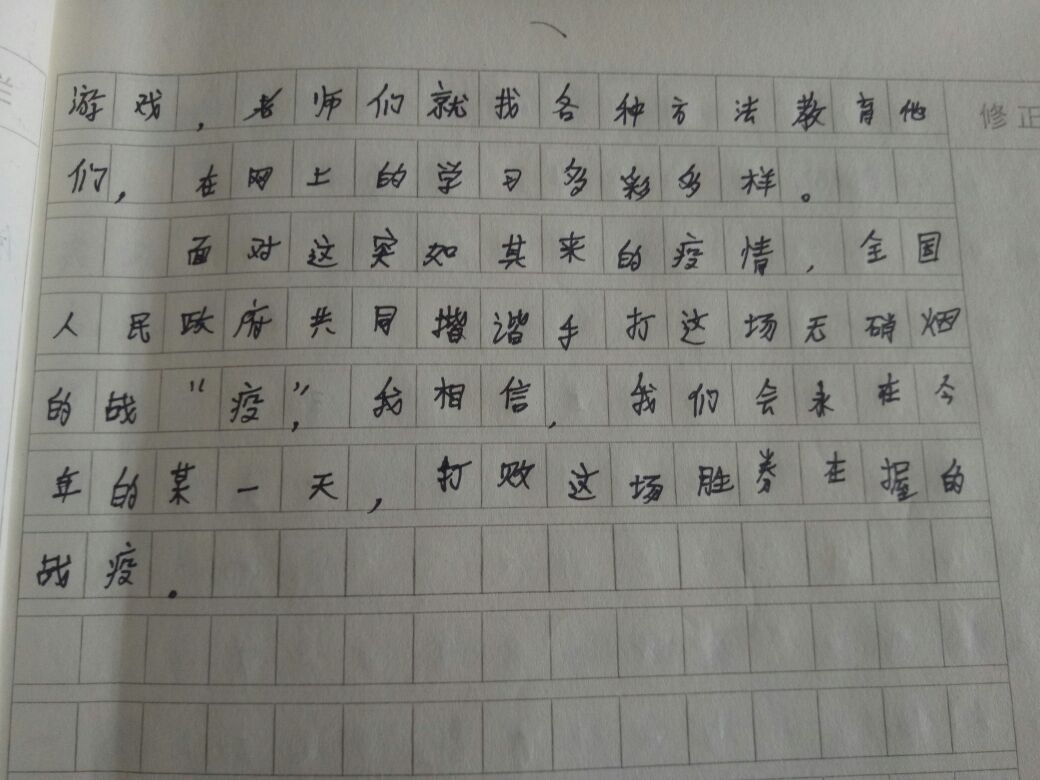 游戏，老师们就找各种方法教育他
修正
们，在网上的学习多彩多样。
面对这突如其来的疫情，全国
人民政府共同揩谐手打这场无硝烟
的战“疫”，我相信，我们会永在今
年的某一天，打败这场胜券在握的
战疫。